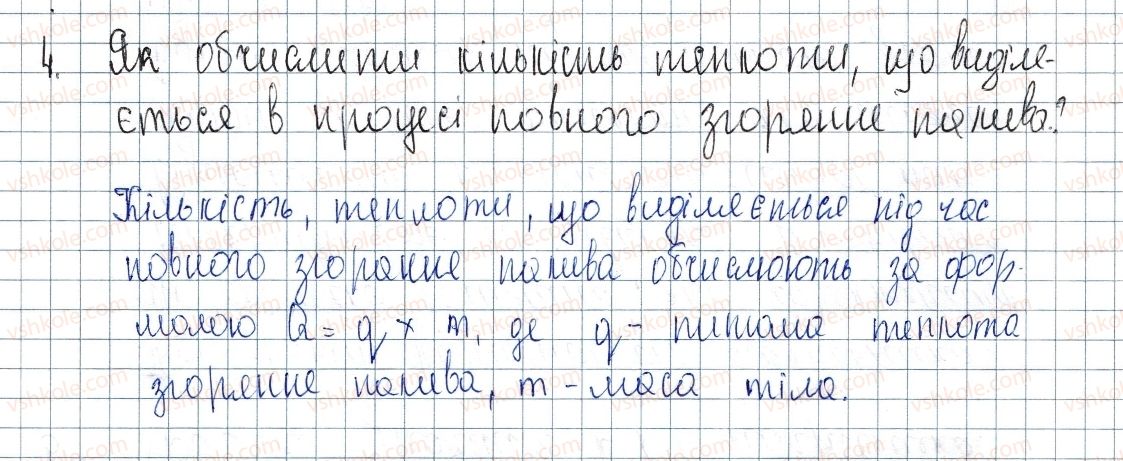 4. Як обчислити кількість теплоти, що виділя-
ється в процесі повного згоряння палива?
Кількість, теплоти, що виділяється під час
повного згорання палива обчислюють за фор-
молою Q = q × m, де q - питома теплота
згоряння палива, m - маса тіла.